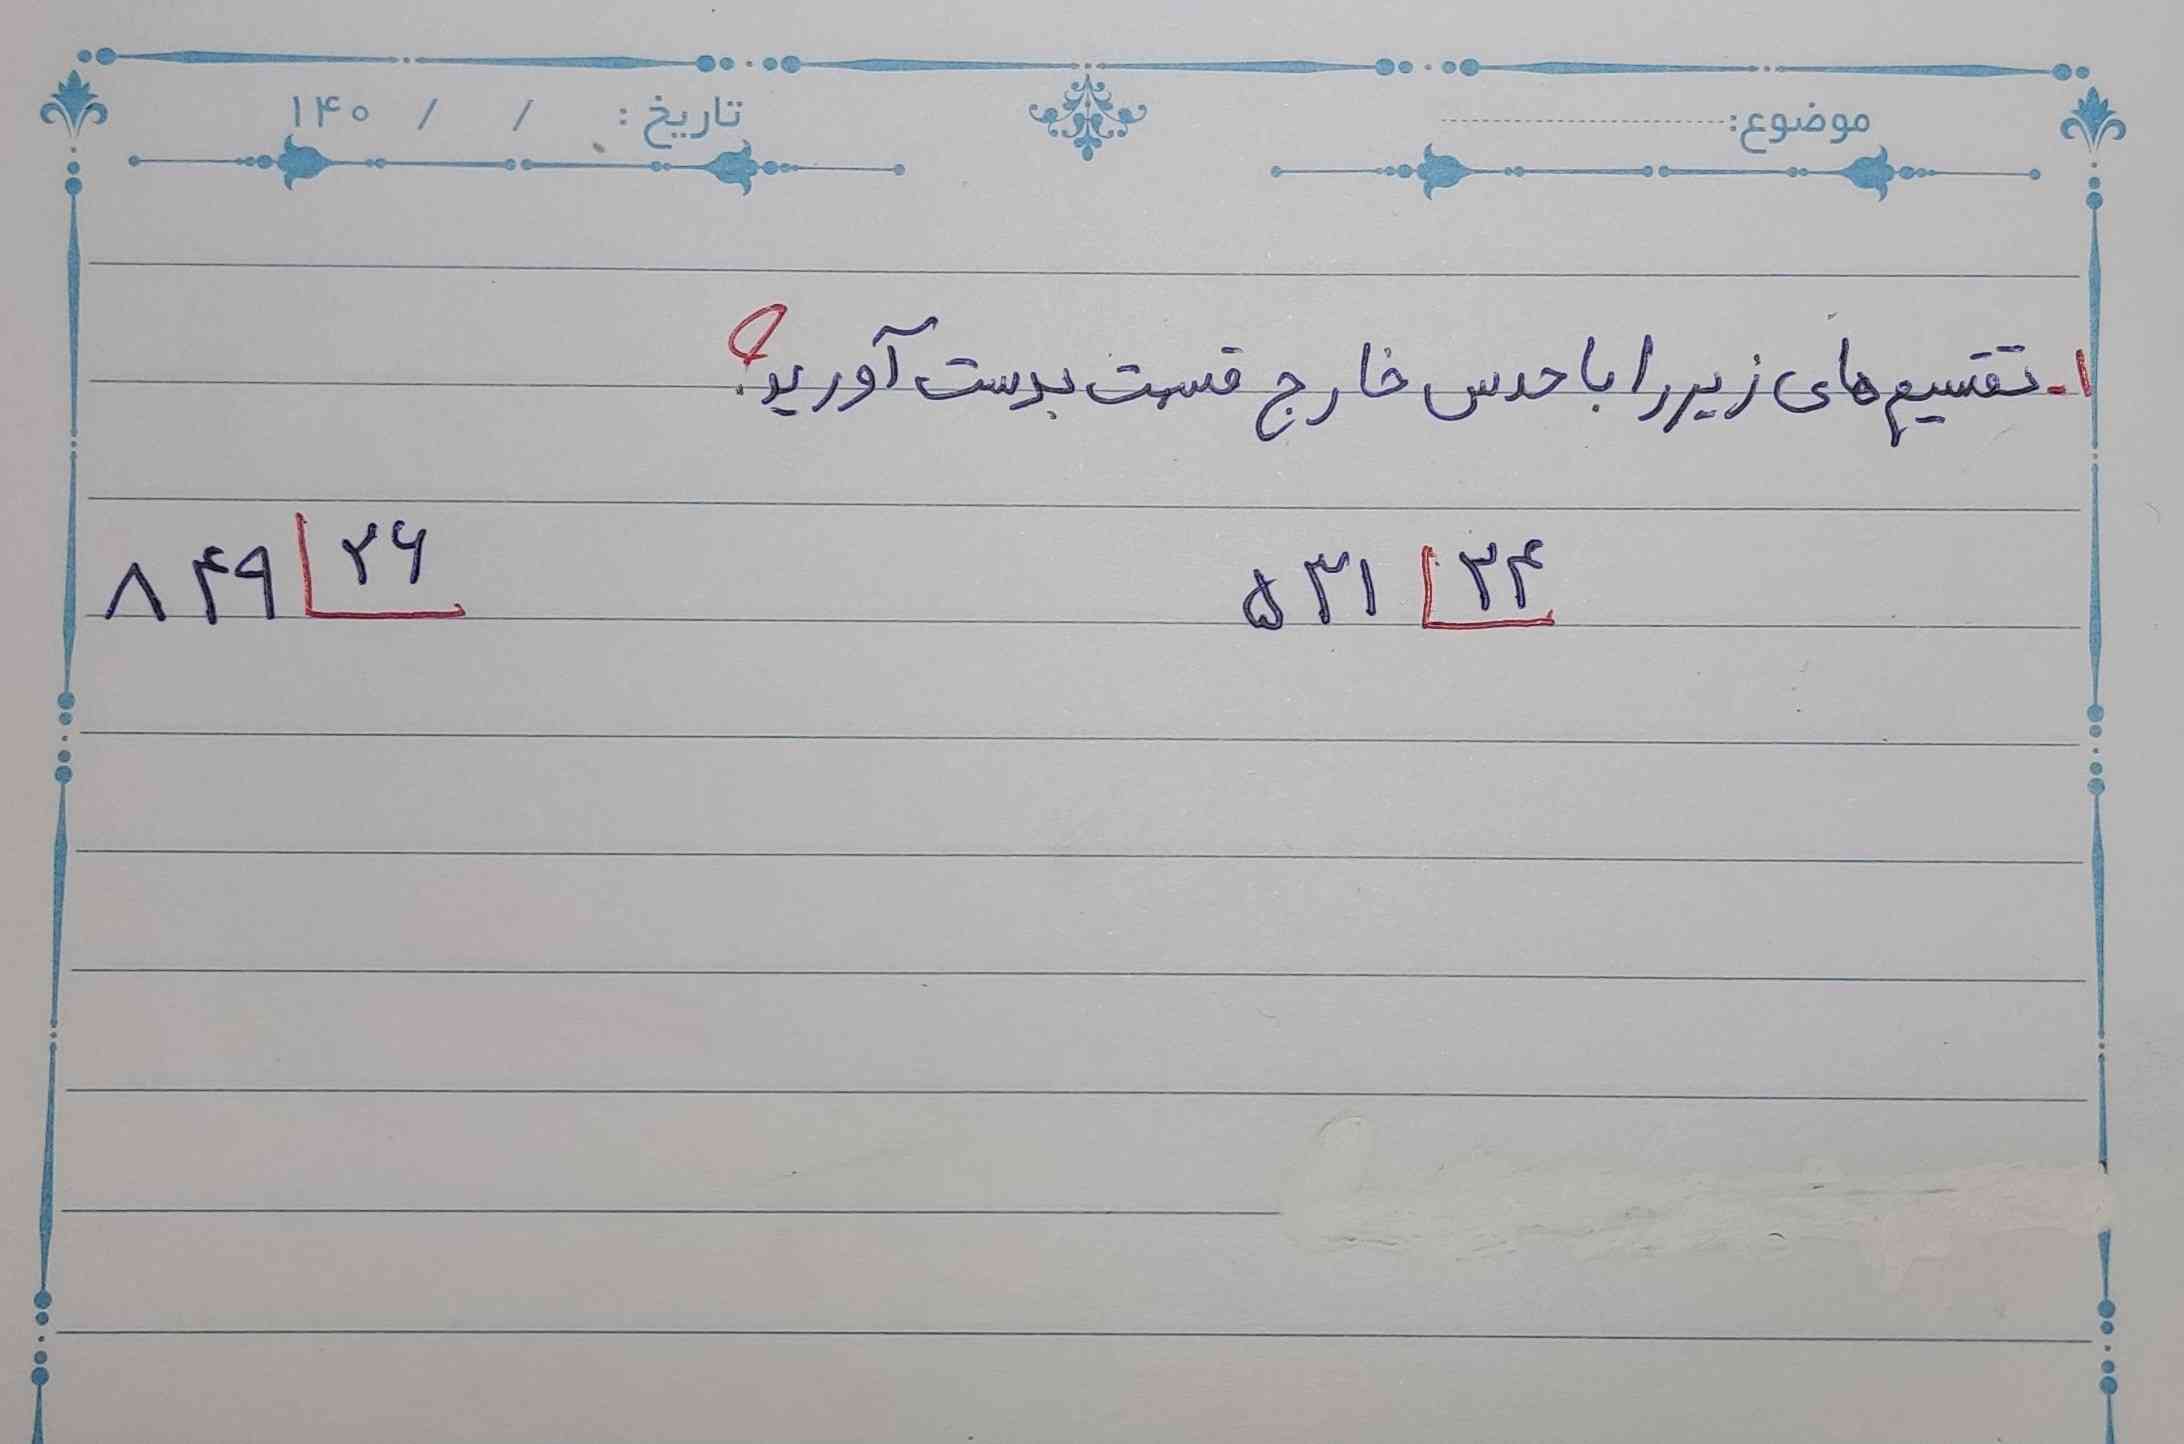 موضوع:
تاریخ: / / ۱۴۰
۱- تقسیم های زیر را با حدس خارج قسمت بدست آورید؟
۵۳۱ ۲۴
۸۴۹ ۲۶